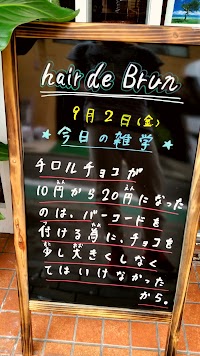 hair de Brun
9月2日(金)
★今日の雑学★
チロルチョコが
10円から20円になった
のは、バーコードを
付ける為に、チョコを
少し大きくしなく
てはいけなかった
から。